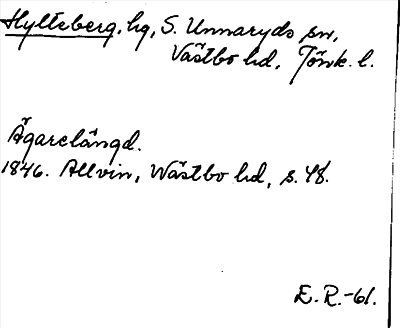 Hylteberg, hg, S. Unnaryds sn,
Västbo hd, Jönk. l.
Ägarelängd.
1846. Allvin, Wästbo hd, s. 48.
E. R.-61.